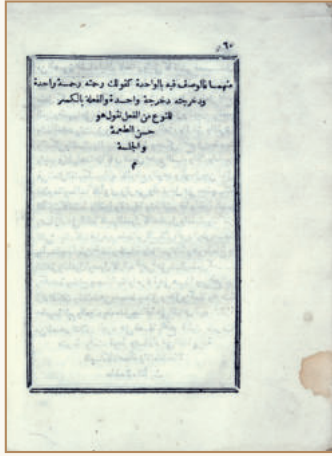 ٦٠
منهما فالوصف فيه بالواحدة كقولك رحمته رحمة واحدة
ودحرجته دحرجة واحدة والفعلة بالكسر
للنوع من الفعل تقول هو
حسن الطعمة
والجلسة
م